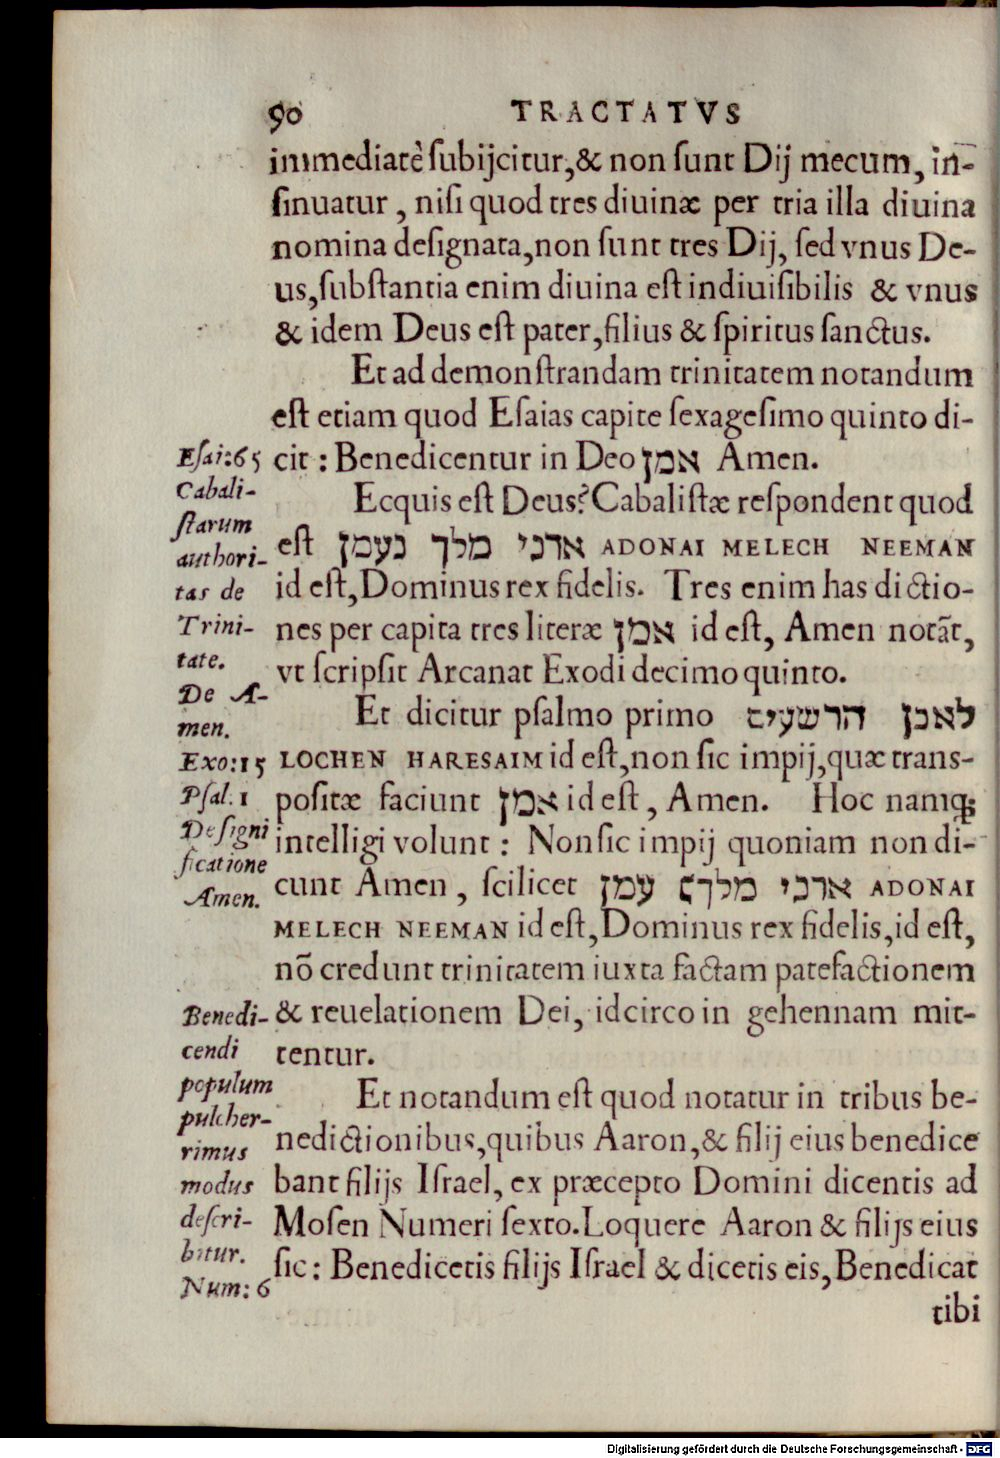 90 TRACTATVS
immediatè ſubijcitur,& non ſunt Dij mecum, in-
ſinuatur, niſi quod tres diuinæ per tria illa diuina
nomina deſignata,non ſunt tres Dij, ſed vnus De-
us,ſubſtantia enim diuina eſt indiuiſibilis & vnus
& idem Deus eſt pater,filius & ſpiritus ſanctus.
Et ad demonſtrandam trinitatem notandum
eſt etiam quod Eſaias capite ſexageſimo quinto di-
cit : Benedicentur in Deo אמן Amen.
Ecquis eſt Deus? Cabaliſtæ reſpondent quod
eſt אדני מלך נעמן ADONAI MELECH NEEMAN
id eſt,Dominus rex fidelis. Tres enim has dictio-
nes per capita tres literæ אמן id eſt, Amen notāt,
vt ſcripſit Arcanat Exodi decimoquinto.
Et dicitur pſalmo primo לאכן הרשעים
LOCHEN HARESAIM id eſt,non ſic impij,quæ trans-
poſitæ faciunt אמן id eſt, Amen. Hoc namq;
intelligi volunt : Non ſic impij quoniam non di-
cunt Amen, ſcilicet אדני מלך עמן ADONAI
MELECH NEEMAN id eſt,Dominus rex fidelis,id eſt,
nō credunt trinitatem iuxta factam patefactionem
& reuelationem Dei, idcirco in gehennam mit-
tentur.
Et notandum eſt quod notatur in tribus be-
nedictionibus,quibus Aaron,& filij eius benedice
bant filijs Iſrael, ex præcepto Domini dicentis ad
Moſen Numeri ſexto. Loquere Aaron & filijs eius
ſic: Benedicetis filijs Iſrael & dicetis eis, Benedicat
tibi
Eſai:65
Cabali-
ſtarum
authori-
tas de
Trini-
tate.
De A-
men.
Exo:15
Pſal.1
De ſigni
ficatione
Amen.
Benedi-
cendi
populum
pulcher-
rimus
modus
deſcri-
bitur.
Num: 6
Digitalisierung gefördert durch die Deutsche Forschungsgemeinschaft - DFG